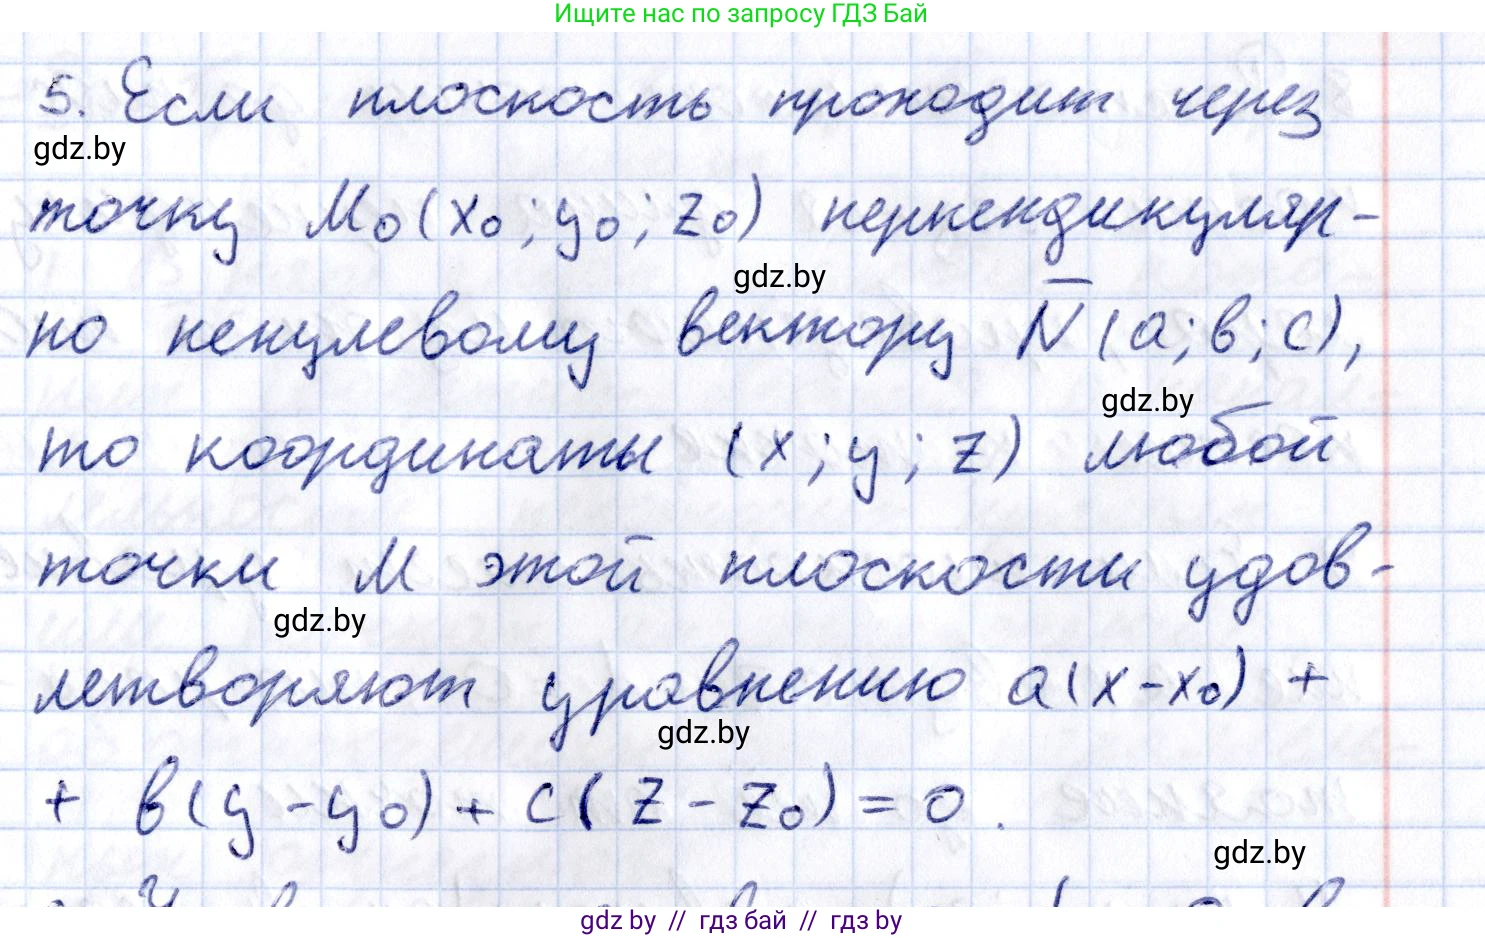 Ищите нас по запросу ГДЗ Бай
5. Если плоскость проходит через
gdz.by
точку M₀(x₀; y₀; z₀) перпендикуляр-
gdz.by
но ненулевому вектору N̅(a; в; c),
gdz.by
то координаты (x; y; z) любой
точки M этой плоскости удов-
gdz.by
летворяют уравнению a(x-x₀) +
gdz.by
+ в(y-y₀) + c(z-z₀) = 0.
gdz.by
gdz by // гдз бай // гдз by